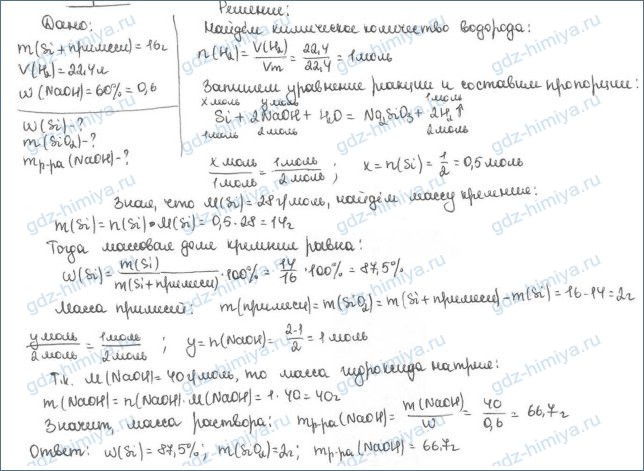 Дано:
m(Si + примеси) = 16г
V(H₂) = 22,4л
w(NaOH) = 60% = 0,6
w(Si) - ?
m(SiO₂) - ?
mр-ра(NaOH) - ?
Решение:
Найдём химическое количество водорода:
n(H₂) = V(H₂)/Vm = 22,4/22,4 = 1 моль
Запишем уравнение реакции и составим пропорции:
x моль y моль 1 моль
Si + 2NaOH + H₂O = Na₂SiO₃ + 2H₂↑
1 моль 2 моль 2 моль
x моль/1 моль = 1 моль/2 моль ; x = n(Si) = 1/2 = 0,5 моль
Зная, что M(Si) = 28 г/моль, найдём массу кремния:
m(Si) = n(Si)•M(Si) = 0,5·28 = 14г
Тогда массовая доля кремния равна:
w(Si) = m(Si)/m(Si + примеси) ·100% = 14/16 ·100% = 87,5%
Масса примесей: m(примеси) = m(SiO₂) = m(Si + примеси) - m(Si) = 16 - 14 = 2г
y моль/2 моль = 1 моль/2 моль ; y = n(NaOH) = 2·1/2 = 1 моль
Т.к. M(NaOH) = 40 г/моль, то масса гидроксида натрия:
m(NaOH) = n(NaOH)·M(NaOH) = 1·40 = 40г
Значит, масса раствора: mр-ра(NaOH) = m(NaOH)/w = 40/0,6 = 66,7г
Ответ: w(Si) = 87,5%; m(SiO₂) = 2г; mр-ра(NaOH) = 66,7г
gdz-himiya.ru